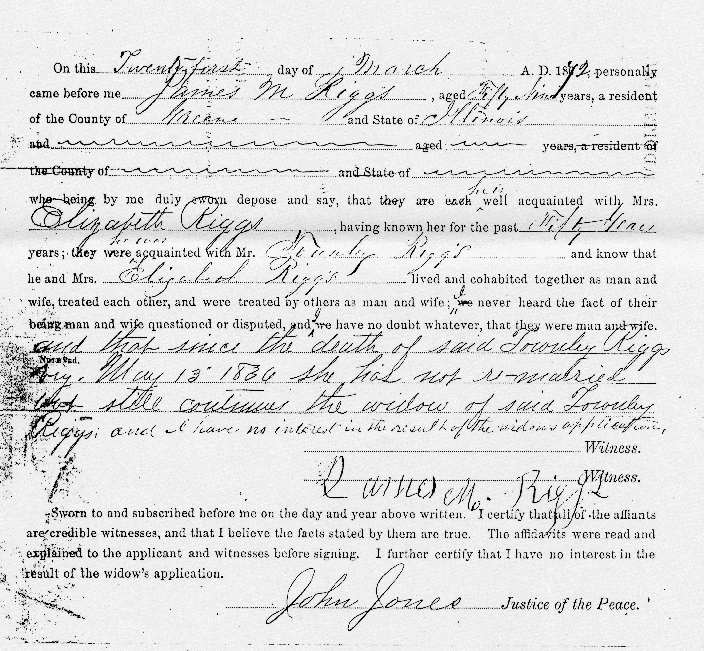 On this Twenty first day of March A. D. 1872, personally
came before me James M Riggs, aged Fifty Nine years, a resident
of the County of Greene and State of Illinois
and aged years, a resident of
the County of and State of
who being by me duly sworn depose and say, that they are each he is well acquainted with Mrs.
Elizabeth Riggs, having known her for the past Fifty Years
years; they were he was acquainted with Mr. Townley Riggs and know that
he and Mrs. Elizabeth Riggs lived and cohabited together as man and
wife, treated each other, and were treated by others as man and wife; we I never heard the fact of their
being man and wife questioned or disputed, and we I have no doubt whatever, that they were man and wife.
and that since the death of said Townley Riggs
viz. May 13 1866 she has not re-married
but still continues the widow of said Townley
Riggs; and I have no interest in the result of the widows application,
Witness.
James M. Riggs Witness.
Sworn to and subscribed before me on the day and year above written. I certify that all of the affiants
are credible witnesses, and that I believe the facts stated by them are true. The affidavits were read and
explained to the applicant and witnesses before signing. I further certify that I have no interest in the
result of the widow's application.
John Jones Justice of the Peace.